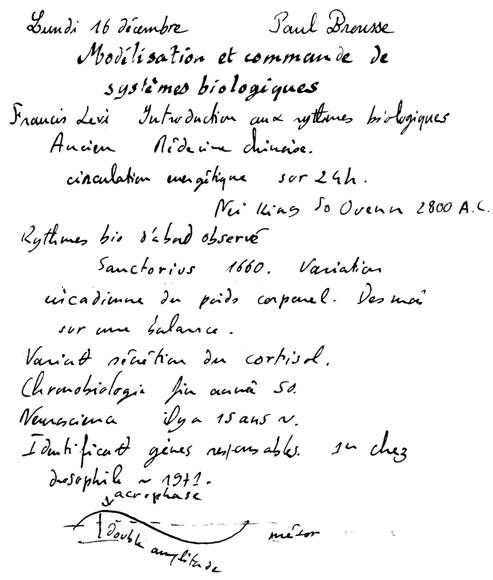 Lundi 16 décembre Paul Brousse
Modélisation et commande de
systèmes biologiques
Francis Levi Introduction aux rythmes biologiques
Ancien Médecine chinoise.
circulation energétique sur 24h.
Nei King So Ouenn 2800 A.C.
Rythmes bio d'abord observé
Sanctorius 1660. Variation
circadienne du poids corporel. Des moi
sur une balance.
Variat sécrétion du cortisol.
Chronobiologie fin année 50.
Neuroscience il y a 15 ans ~.
Identificat gènes responsables. 1er chez
drosophile ~ 1971.
acrophase
double amplitude
mésor